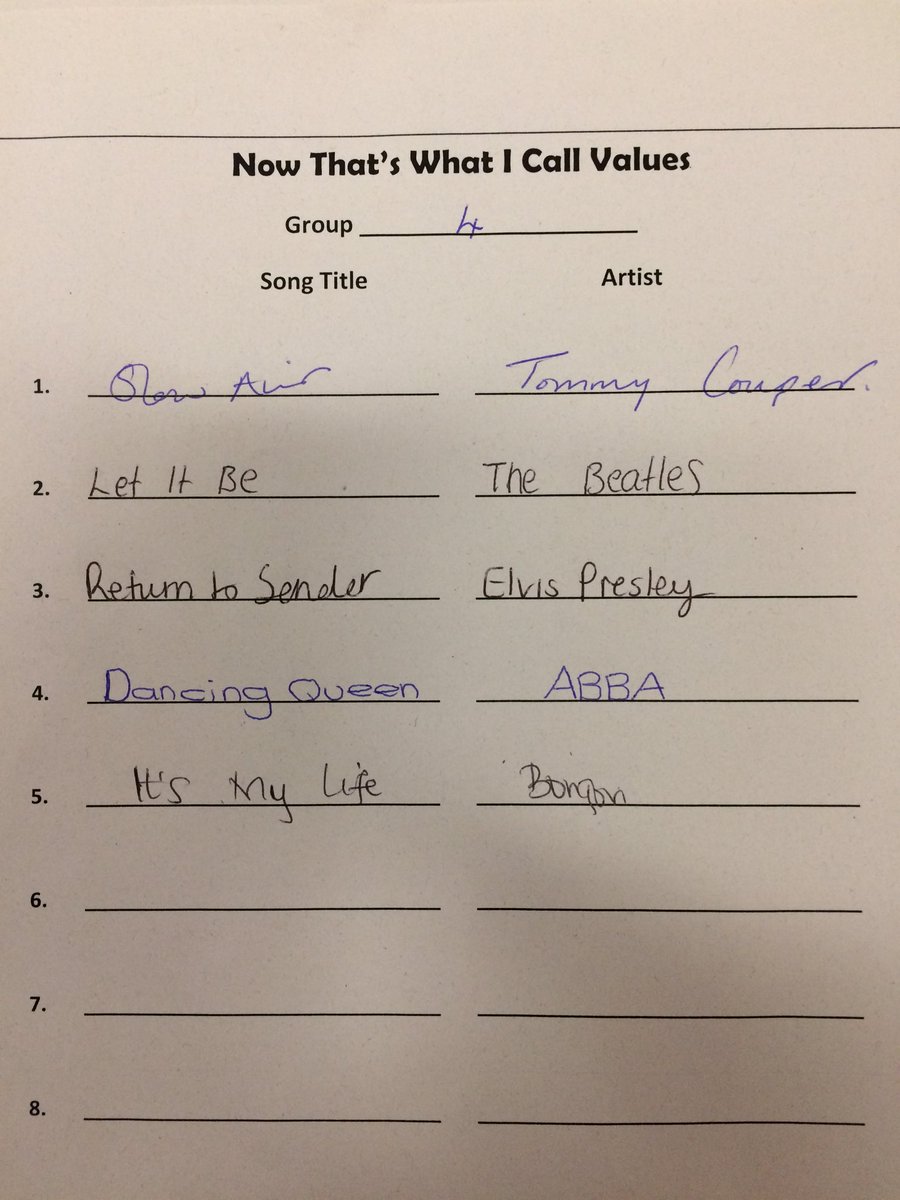 Now That's What I Call Values
Group 4
Song Title Artist
1. Slow Air Tommy Couper.
2. Let It Be The Beatles
3. Return to Sender Elvis Presley
4. Dancing Queen ABBA
5. It's My Life
6.
7.
8.